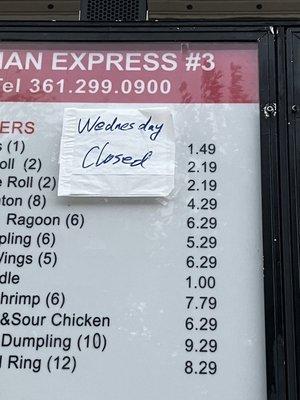 AN EXPRESS #3
Tel 361.299.0900
ERS
Wednesday
Closed
(1) 1.49
oll (2) 2.19
e Roll (2) 2.19
ton (8) 4.29
Ragoon (6) 6.29
pling (6) 5.29
Wings (5) 6.29
dle 1.00
hrimp (6) 7.79
&Sour Chicken 6.29
Dumpling (10) 9.29
l Ring (12) 8.29